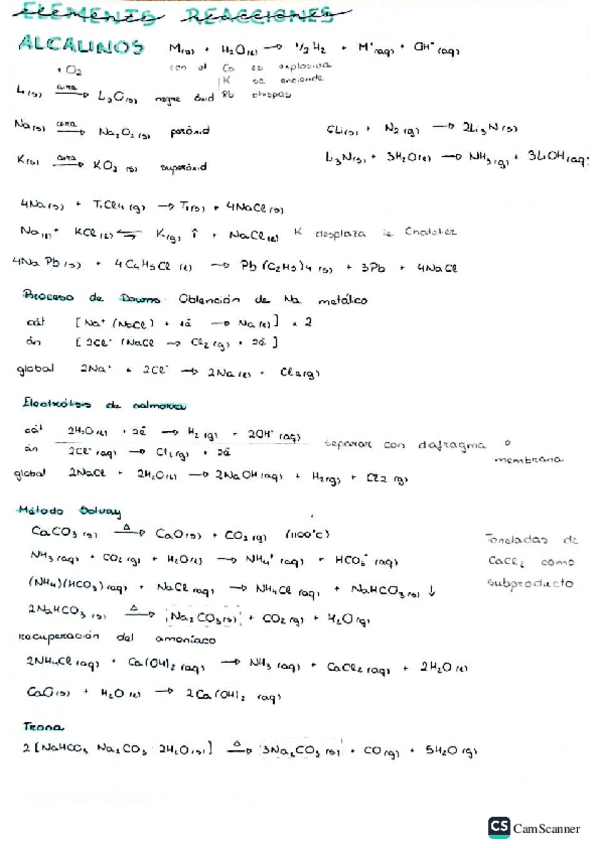 ELEMENTS REACCIONES
ALCALINOS M(s) + H2O(l) → 1/2 H2 + M+(aq) + OH-(aq)
+ O2 con el Cs es explosiva
K se enciende
Li(s) → L2O(s) Rb chispas
Na(s) → Na2O2(s) peróxid 6Li(s) + N2(g) → 2Li3N(s)
K(s) → KO2(s) superóxid Li3N(s) + 3H2O(l) → NH3(g) + 3LiOH(aq)
4Na(s) + TiCl4(g) → Ti(s) + 4NaCl(s)
Na(l) + KCl(l) ⇌ K(g) ↑ + NaCl(l) K desplaza le Chatelier
4Na Pb(s) + 4C2H5Cl(l) → Pb(C2H5)4(s) + 3Pb + 4NaCl
Proceso de Downs Obtención de Na metálico
cát [Na+(NaCl) + 1ē → Na(l)] × 2
án [2Cl-(NaCl → Cl2(g) + 2ē]
global 2Na+ + 2Cl- → 2Na(l) + Cl2(g)
Electrólisis de salmorra
cát 2H2O(l) + 2ē → H2(g) + 2OH-(aq)
án 2Cl-(aq) → Cl2(g) + 2ē separar con dafragma o membrana
global 2NaCl + 2H2O(l) → 2NaOH(aq) + H2(g) + Cl2(g)
Método Solvay
CaCO3(s) Δ→ CaO(s) + CO2(g) (1100°C)
NH3(aq) + CO2(g) + H2O(l) → NH4+(aq) + HCO3-(aq)
(NH4)(HCO3)(aq) + NaCl(aq) → NH4Cl(aq) + NaHCO3(s) ↓
Toneladas de
CaCl2 como
subproducto
2NaHCO3(s) Δ→ Na2CO3(s) + CO2(g) + H2O(g)
recuperación del amoníaco
2NH4Cl(aq) + Ca(OH)2(aq) → NH3(aq) + CaCl2(aq) + 2H2O(l)
CaO(s) + H2O(l) → 2Ca(OH)2(aq)
Trona
2[NaHCO3 Na2CO3 2H2O(s)] Δ→ 3Na2CO3(s) + CO(g) + 5H2O(g)
CS CamScanner